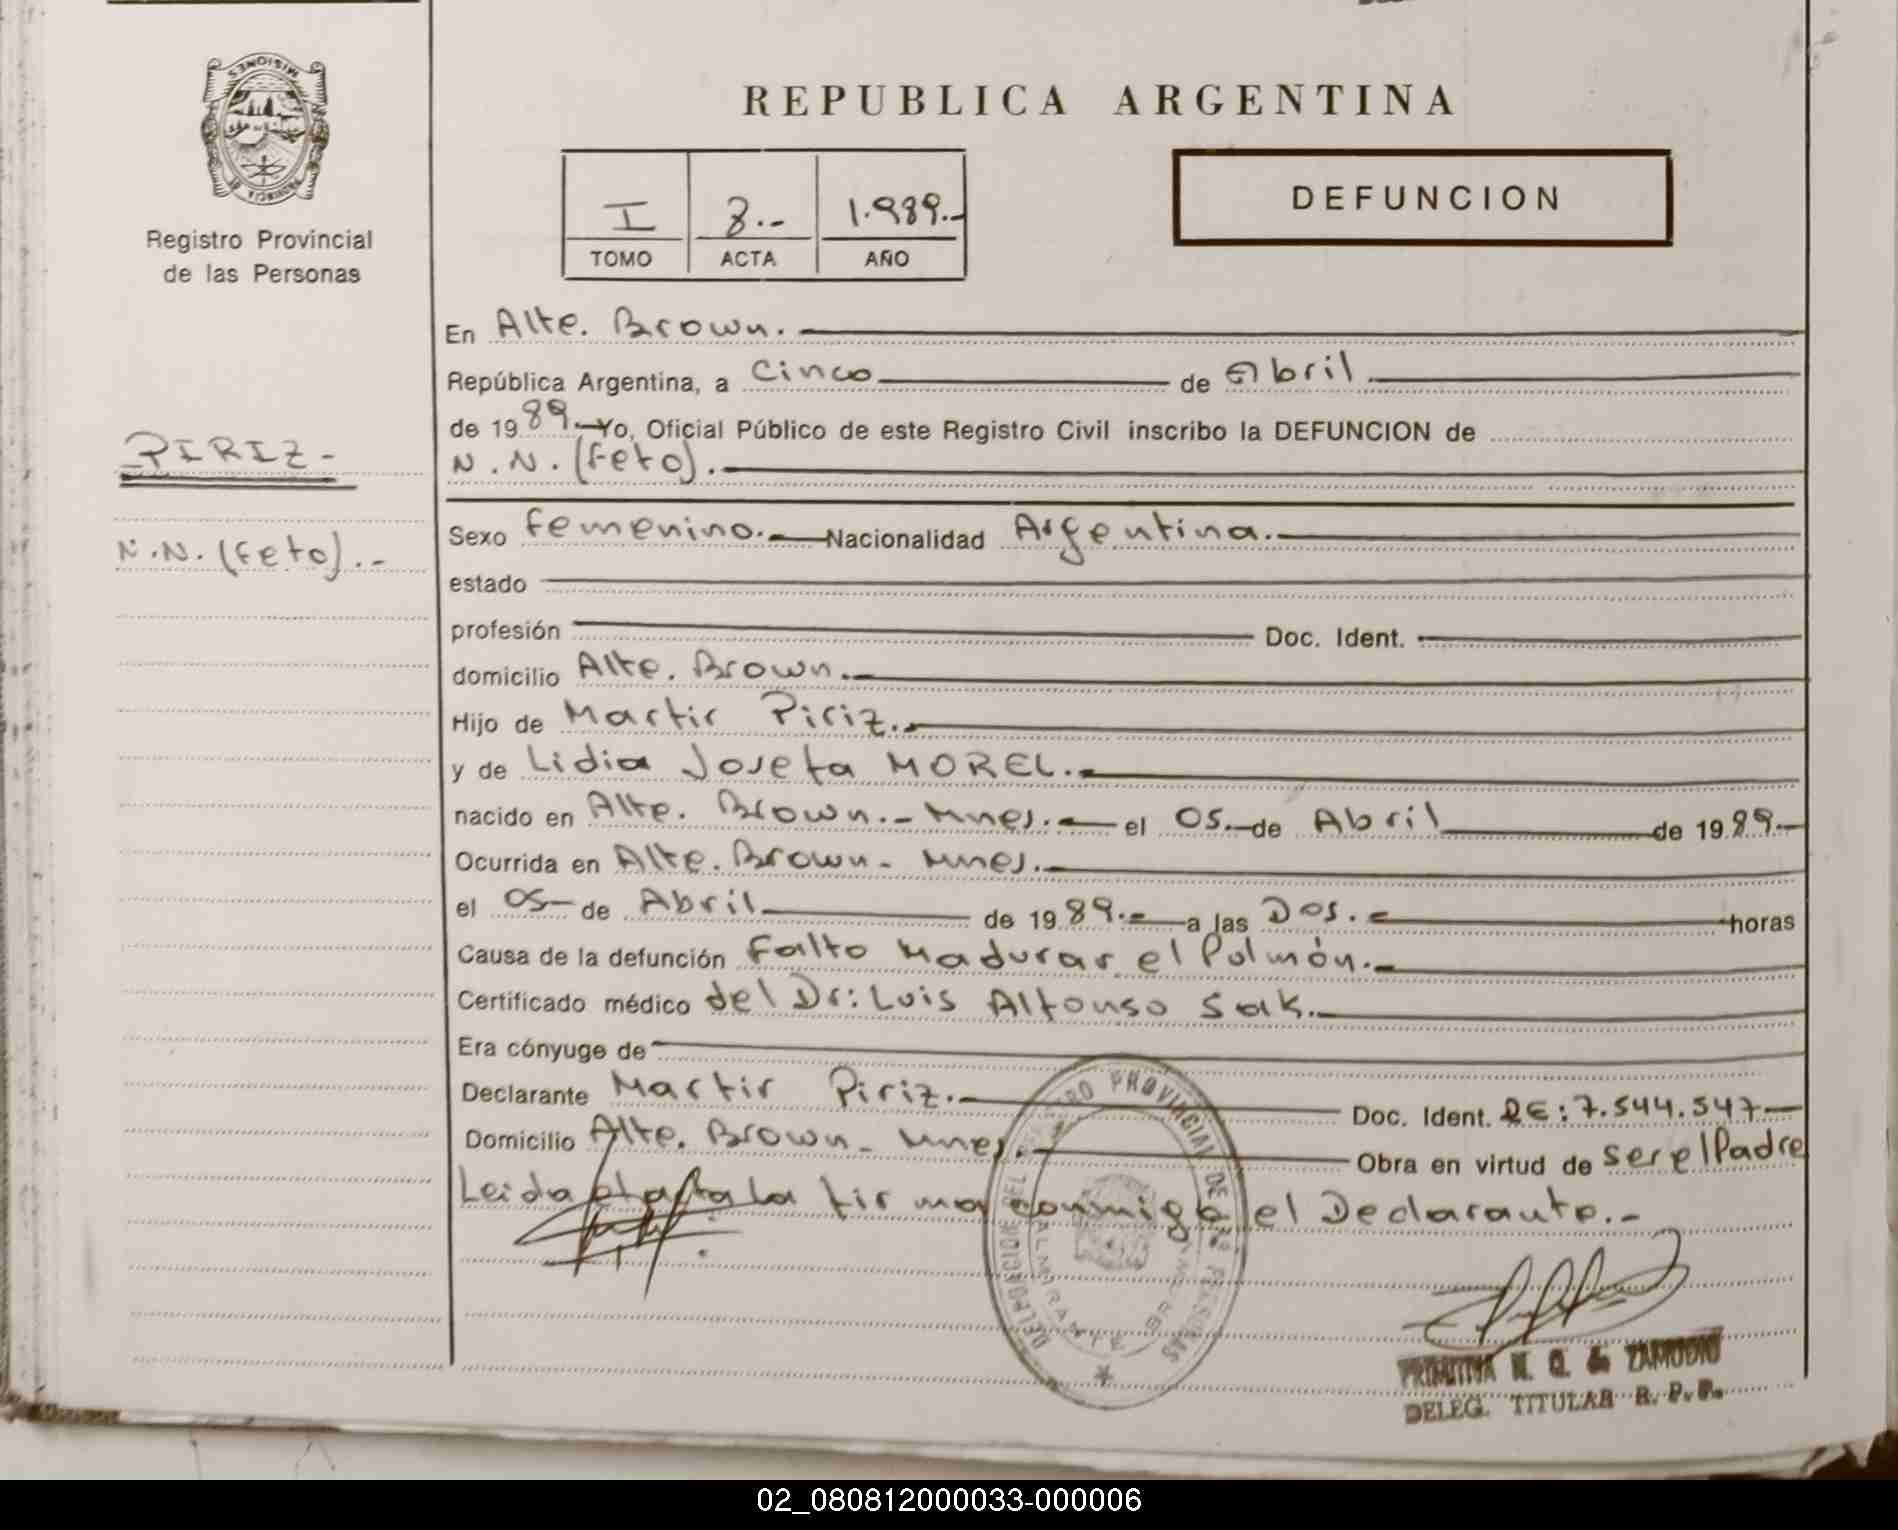 MISIONES
PROVINCIA DE
Registro Provincial
de las Personas
REPUBLICA ARGENTINA
I 8.- 1.989.-
TOMO ACTA AÑO
DEFUNCION
En Alte. Brown.
República Argentina, a Cinco de Abril
de 1989.- Yo, Oficial Público de este Registro Civil inscribo la DEFUNCION de
PIRIZ-
N.N. (Feto).
N.N. (Feto).-
Sexo Femenino.- Nacionalidad Argentina.-
estado
profesión Doc. Ident.
domicilio Alte. Brown.
Hijo de Martir Piriz.
y de Lidia Josefa MOREL.
nacido en Alte. Brown.- Mnes.- el 05.- de Abril de 1989.-
Ocurrida en Alte. Brown- Mnes.
el 05- de Abril de 1989.- a las Dos.- horas
Causa de la defunción Falto Madurar el Polmón.-
Certificado médico del Dr: Luis Alfonso Sak.
Era cónyuge de
Declarante Martir Piriz.- Doc. Ident. DE: 7.544.547-
Domicilio Alte. Brown- Mnes. Obra en virtud de ser el Padre
Leida el acta la firma conmigo el Declarante.-
DELEGACION DEL REGISTRO PROVINCIAL DE LAS PERSONAS
ALMIRANTE BROWN
PRIMITIVA N. Q. de ZAMUDIO
DELEG. TITULAR R. P. P.
02_080812000033-000006